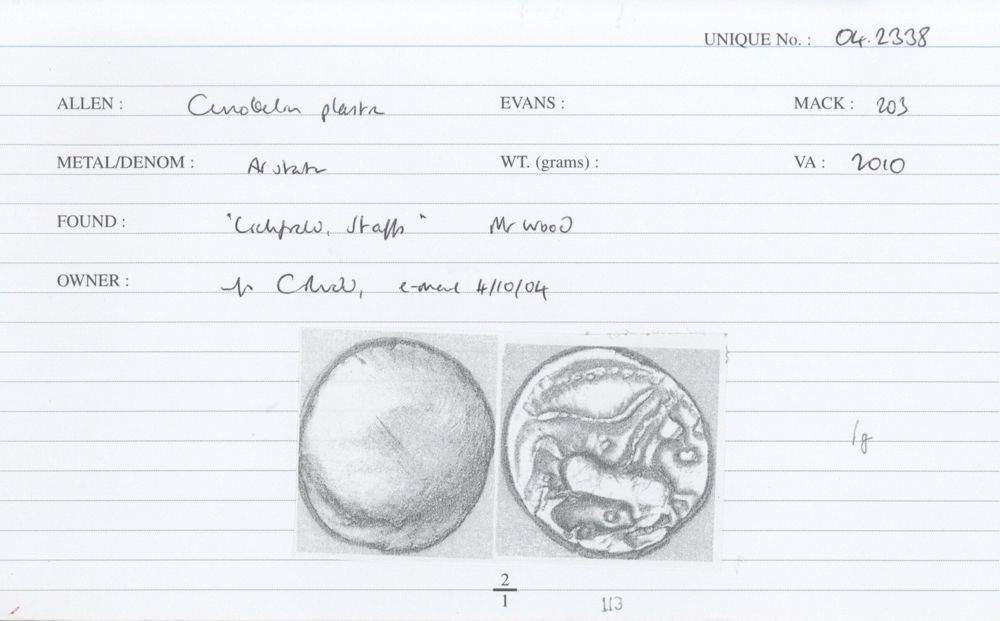 UNIQUE No. : 04.2338
ALLEN : Cunobelin plastr EVANS : MACK : 203
METAL/DENOM : AV statr WT. (grams) : VA : 2010
FOUND : "Lichfield, Staffs" Mr Wood
OWNER : e-mail 4/10/04
2
1
113